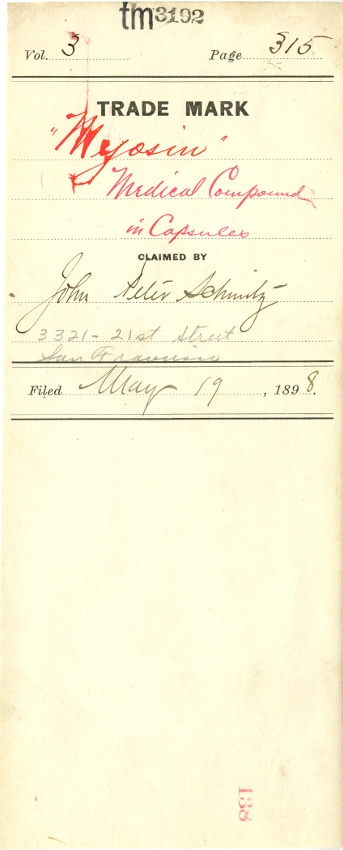 tm3192
Vol. 3 Page 315
TRADE MARK
"Myosin"
Medical Compound
in Capsules
CLAIMED BY
John Peter Schmitz
3321 - 21st Street
San Francisco
Filed May 19, 1898.
138